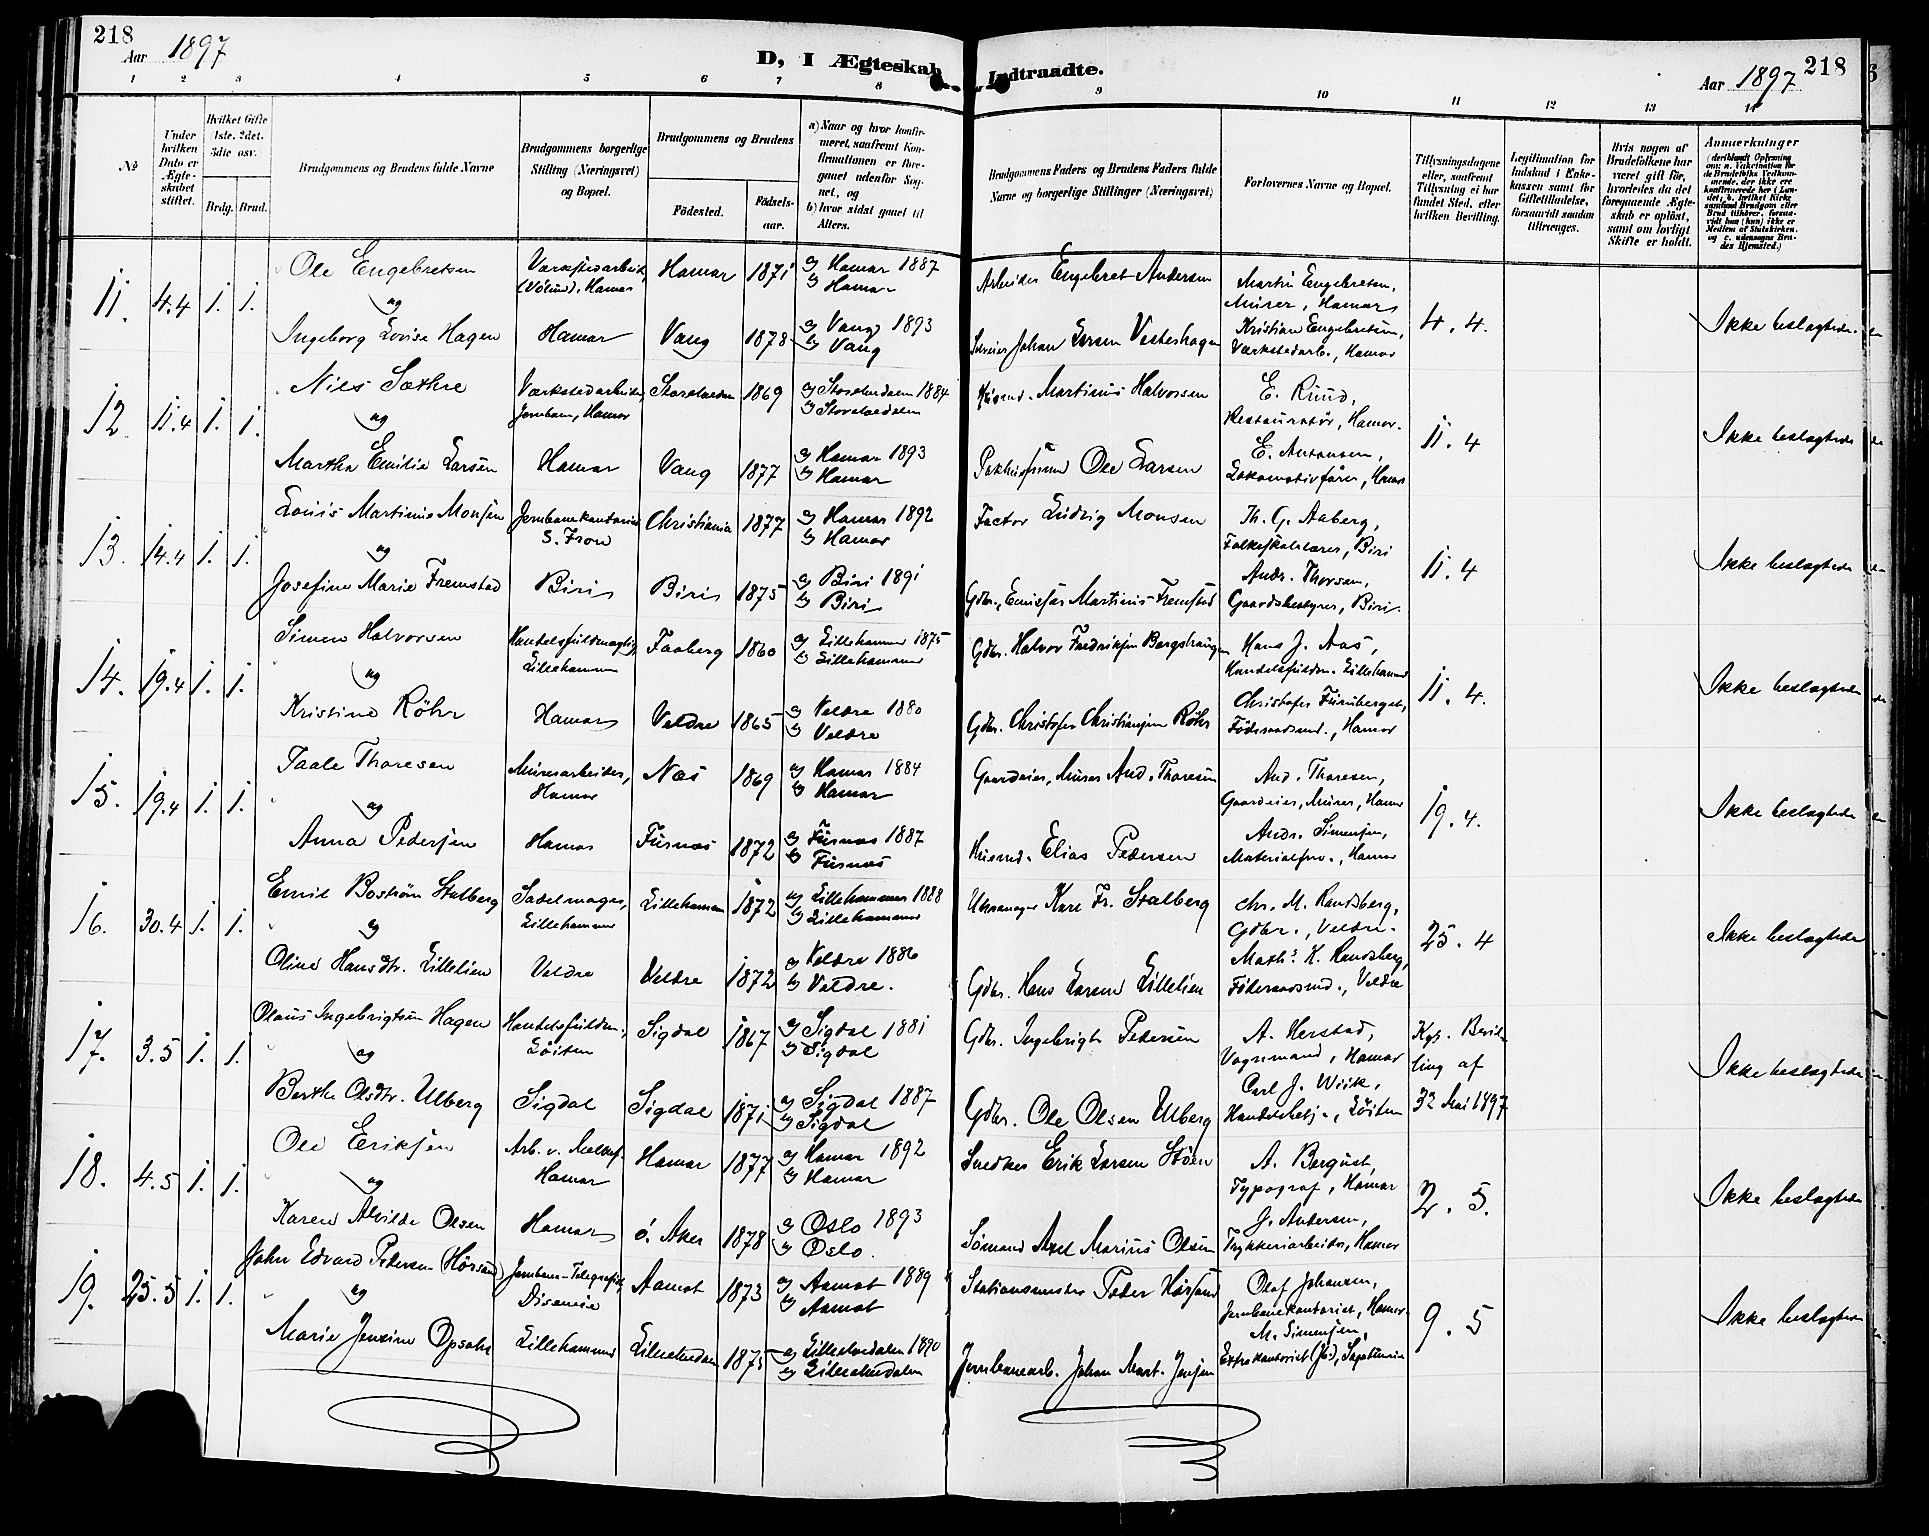 218
Aar 1897
D, I Ægteskab Indtraadte.
Aar 1897
218
1 2 3 4 5 6 7 8 9 10 11 12 13 14
No.
Under hvilken Dato er Ægteskabet stiftet.
Hvilket Gifte 1ste. 2det. 3die osv.
Brdg. Brud.
Brudgommens og Brudens fulde Navne
Brudgommens borgerlige Stilling (Næringsvei) og Bopæl.
Brudgommens og Brudens
Födested.
Födselsaar.
a) Naar og hvor konfirmeret, saafremt Konfirmationen er foregaaet udenfor Sognet, og
b) hvor sidst gaaet til Alters.
Brudgommens Faders og Brudens Faders fulde Navne og borgerlige Stillinger (Næringsvei)
Forlovernes Navne og Bopæl.
Tillysningsdagene eller, saafremt Tillysning ei har fundet Sted, efter hvilken Bevilling.
Legitimation for Indskud i Enkekassen samt for Giftetilladelse, forsaavidt saadan tiltrænges.
Hvis nogen af Brudefolkene har været gift för, hvorledes da det foregaaende Ægteskab er oplöst, samt om lovligt Skifte er holdt.
Anmærkninger
11. 4.4 1. 1.
Ole Engebretsen
og
Ingeborg Lovise Hagen
Værkstedarbeid. (Vølund), Hamar
Hamar
Hamar 1871
Vang 1878
a) Hamar 1887
b) Hamar
a) Vang 1893
b) Vang
Arbeider Engebret Andersen
Selveier Johan Larsen Vesterhagen
Martin Engebretsen,
Murer, Hamar
Kristian Engebretsen,
Værkstedarb., Hamar
4.4.
Ikke beslægtede.
12. 11.4 1. 1.
Nils Sæthre
og
Martha Emilie Larsen
Værkstedarbeider
Jernban., Hamar
Hamar
Storelvedalen 1869
Vang 1877
a) Storelvedalen 1884
b) Storelvedalen
a) Hamar 1893
b) Hamar
Husmd. Martinus Halvorsen
Pakhusformd Ole Larsen
E. Ruud,
Restauratør, Hamar.
E. Antonsen,
Lokomotivfører, Hamar
11.4
Ikke beslægtede
13. 14.4 1. 1.
Louis Martinius Monsen
og
Josefine Marie Fremstad
Jernbanekontorist
S. Fron
Biri
Christiania 1877
Biri 1875
a) Hamar 1892
b) Hamar
a) Biri 1891
b) Biri
Factor Ludvig Monsen
Gdbr., Emissær Martinius Fremstad
Th. G. Aaberg,
Folkeskolelærer, Biri
Andr. Thorsen,
Gaardsbestyrer, Biri.
11.4
Ikke beslægtede
14. 19.4 1. 1.
Simen Halvorsen
og
Kristine Röhr
Handelsfuldmægtig,
Lillehammer
Hamar
Faaberg 1860
Veldre 1865
a) Lillehammer 1875
b) Lillehammer
a) Veldre 1880
b) Veldre
Gdbr. Halvor Fredriksen Bergshaugen
Gdbr. Christofer Christiansen Röhr
Hans J. Aas,
Handelsfuldm. Lillehammer
Christofer Furuberget,
Föderaadsmd., Hamar
11.4.
Ikke beslægtede
15. 19.4 1. 1.
Paale Thoresen
og
Anna Pedersen
Murerarbeider,
Hamar
Hamar
Næs 1869
Furnæs 1872
a) Hamar 1884
b) Hamar
a) Furnæs 1887
b) Furnæs
Gaardeier, Murer And. Thoresen
Husmd. Elias Pedersen
And. Thoresen,
Gaardeier, Murer, Hamar
Andr. Simensen,
Materialforv., Hamar
19.4.
Ikke beslægtede
16. 30.4 1. 1.
Emil Boström Stalberg
og
Oline Hansdtr. Lillelien
Sadelmager,
Lillehammer
Veldre
Lillehammer 1872
Veldre 1872
a) Lillehammer 1888
b) Lillehammer
a) Veldre 1886
b) Veldre.
Uhrmager Karl Fr. Stalberg
Gdbr. Hans Larsen Lillelien
Chr. M. Rendsberg,
Gdbr., Veldre.
Math. K. Rendsberg,
Föderaadsmd., Veldre
25.4
Ikke beslægtede
17. 3.5 1. 1.
Olaus Ingebrigtsen Hagen
og
Berthe Olsdtr. Ulberg
Handelsfuldm.,
Löiten
Sigdal
Sigdal 1867
Sigdal 1871
a) Sigdal 1881
b) Sigdal
a) Sigdal 1887
b) Sigdal
Gdbr. Ingebrigt Pedersen
Gdbr. Ole Olsen Ulberg
A. Herstad,
Vognmand, Hamar
Carl J. Wiik,
Handelsbetj., Löiten
Kgl. Bevilling af
Mai 1897
Ikke beslægtede
18. 4.5 1. 1.
Ole Eriksen
og
Karen Alvilde Olsen
Arb. v. Melkef.
Hamar
Hamar
Hamar 1877
Ö. Aker 1878
a) Hamar 1892
b) Hamar
a) Oslo 1893
b) Oslo.
Snedker Erik Larsen Stöen
Sömand Axel Marius Olsen
A. Bergust,
Typograf, Hamar
J. Andersen,
Trykkeriarbeider, Hamar
2.5.
Ikke beslægtede
19. 25.5 1. 1.
John Edvard Pedersen (Hörsand)
og
Marie Jensine Opsahl
Jernbane-Telegrafist,
Disenaaen
Lillehammer
Aamot 1873
Lilleelvedalen 1875
a) Aamot 1889
b) Aamot
a) Lilleelvedalen 1890
b) Lilleelvedalen
Stationsmester Peder Hörsand
Jernbanearb. Johan Mart. Jensen
Olaf Johansen,
Jernbanekontorist, Hamar.
M. Simensen,
Extrakontorist
9.5
Ikke beslægtede